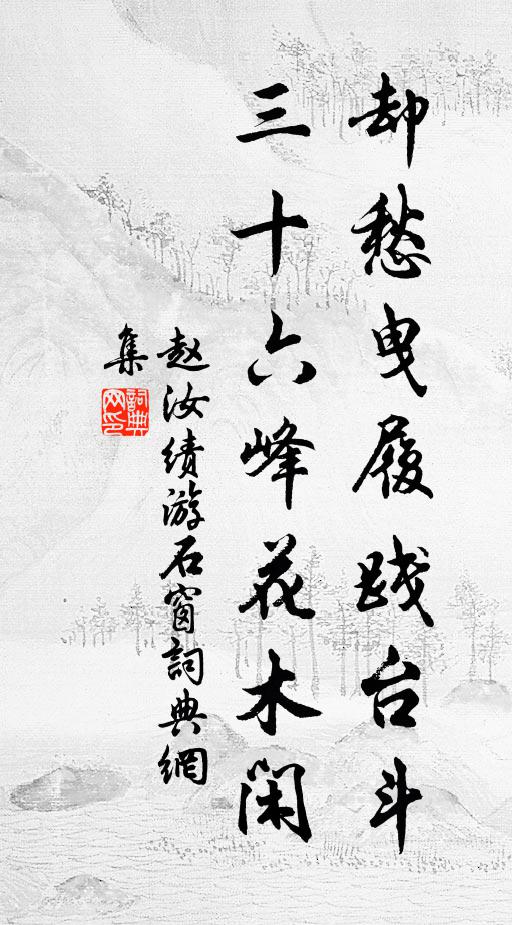 却愁曳履践台斗
三十六峰花木闲
赵汝绩游石窗詞典網
集
詞典
网印